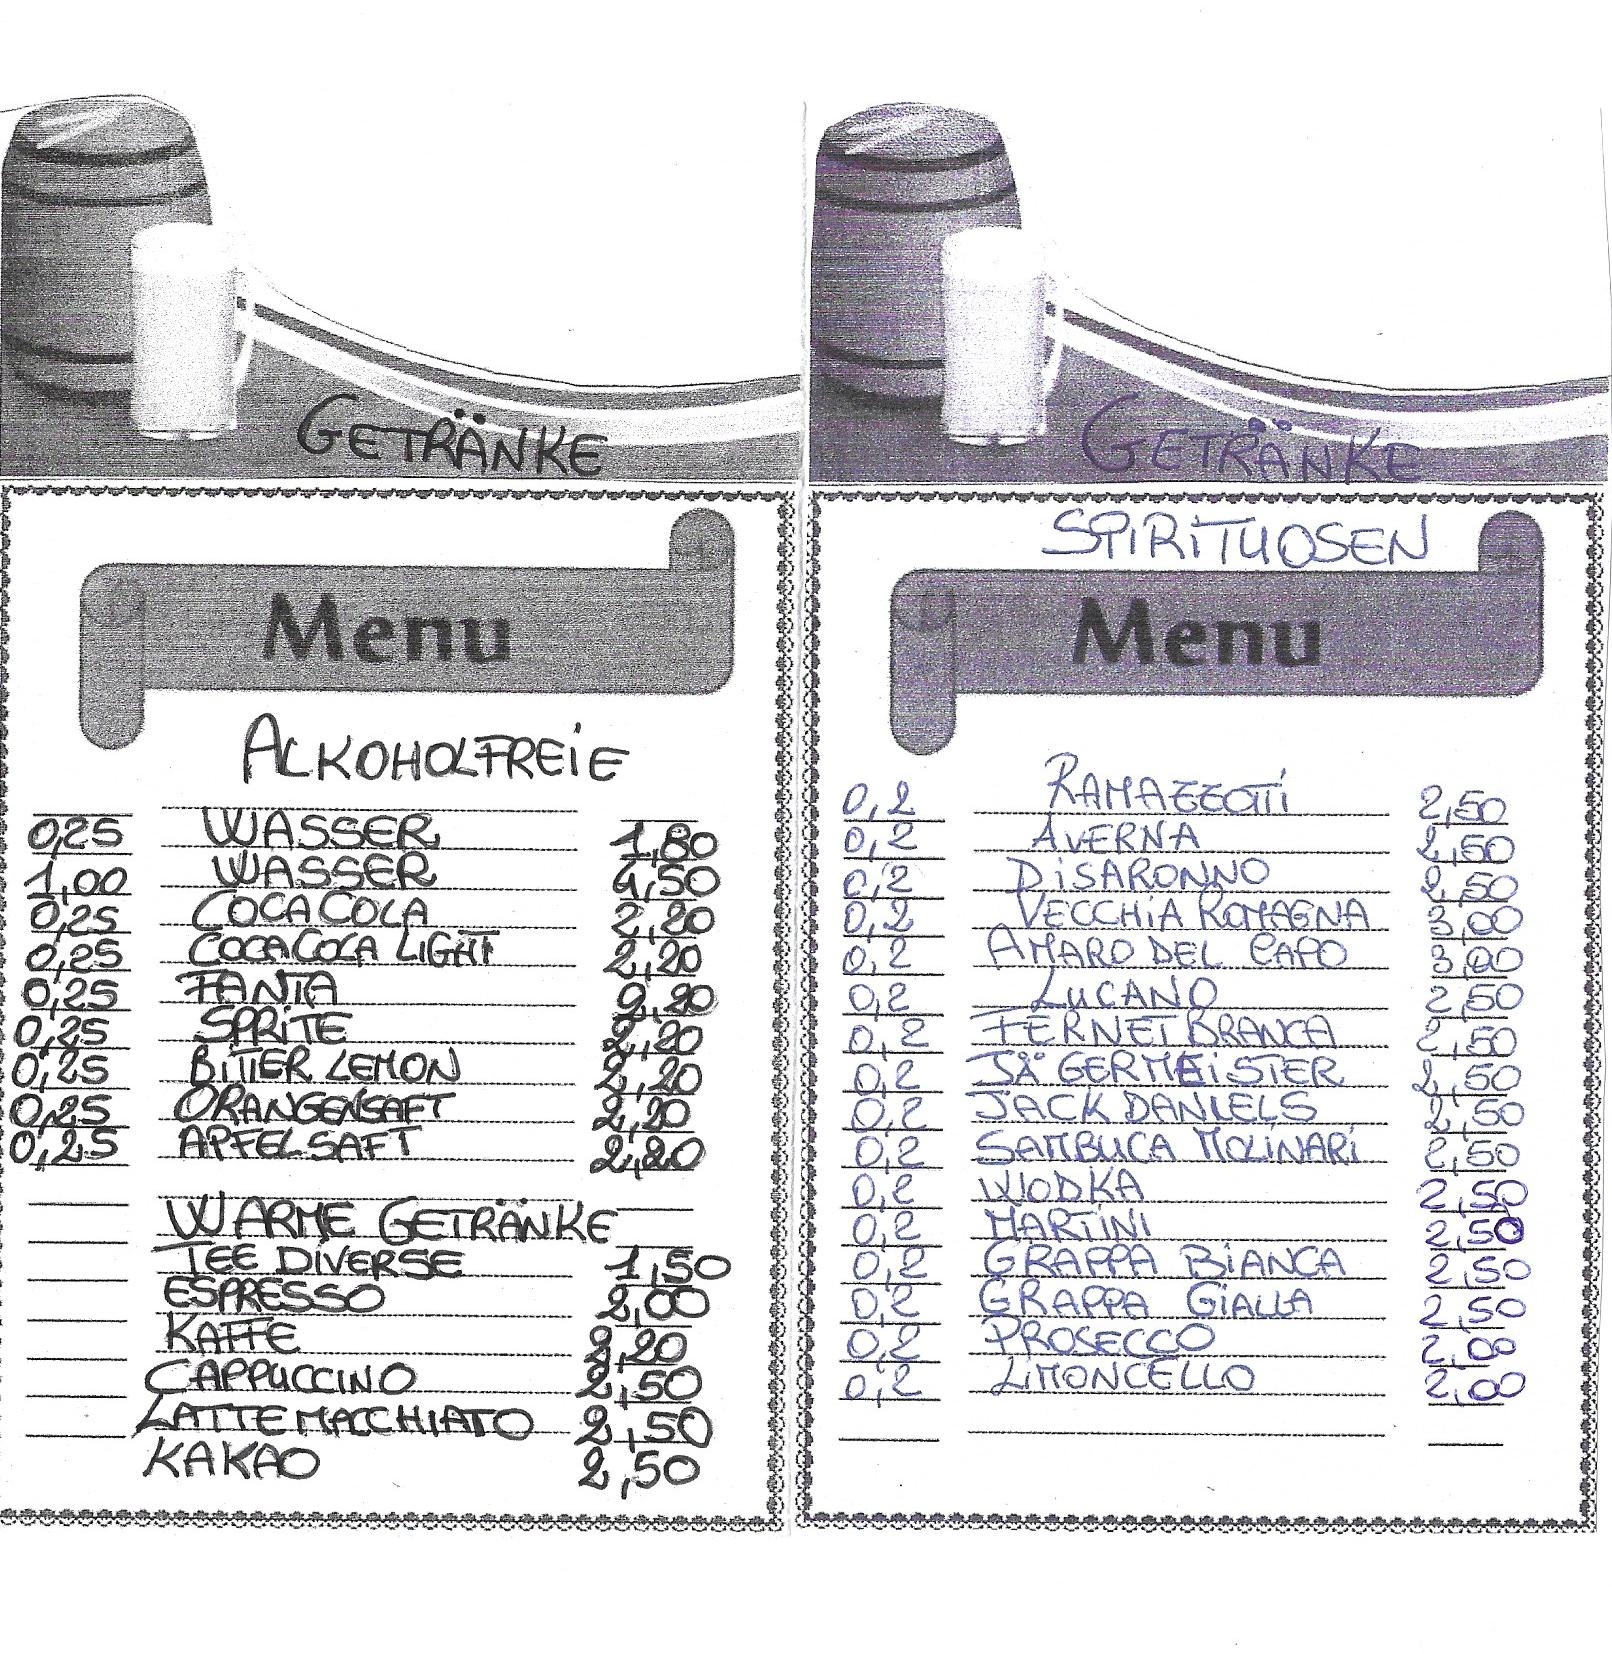 GETRÄNKE
Menu
ALKOHOLFREIE
0,25 WASSER 1,80
1,00 WASSER 4,50
0,25 COCA COLA 2,20
0,25 COCA COLA LIGHT 2,20
0,25 FANTA 2,20
0,25 SPRITE 2,20
0,25 BITTER LEMON 2,20
0,25 ORANGENSAFT 2,20
0,25 APFELSAFT 2,20
WARME GETRÄNKE
TEE DIVERSE 1,50
ESPRESSO 2,00
KAFFE 2,20
CAPPUCCINO 2,50
LATTE MACCHIATO 2,50
KAKAO 2,50
GETRÄNKE
SPIRITUOSEN
Menu
0,2 RAMAZZOTTI 2,50
0,2 AVERNA 2,50
0,2 DISARONNO 2,50
0,2 VECCHIA ROMAGNA 3,00
0,2 AMARO DEL CAPO 3,00
0,2 LUCANO 2,50
0,2 FERNET BRANCA 2,50
0,2 JÄGERMEISTER 2,50
0,2 JACK DANIELS 2,50
0,2 SAMBUCA MOLINARI 2,50
0,2 WODKA 2,50
0,2 MARTINI 2,50
0,2 GRAPPA BIANCA 2,50
0,2 GRAPPA GIALLA 2,50
0,2 PROSECCO 2,00
0,2 LIMONCELLO 2,00